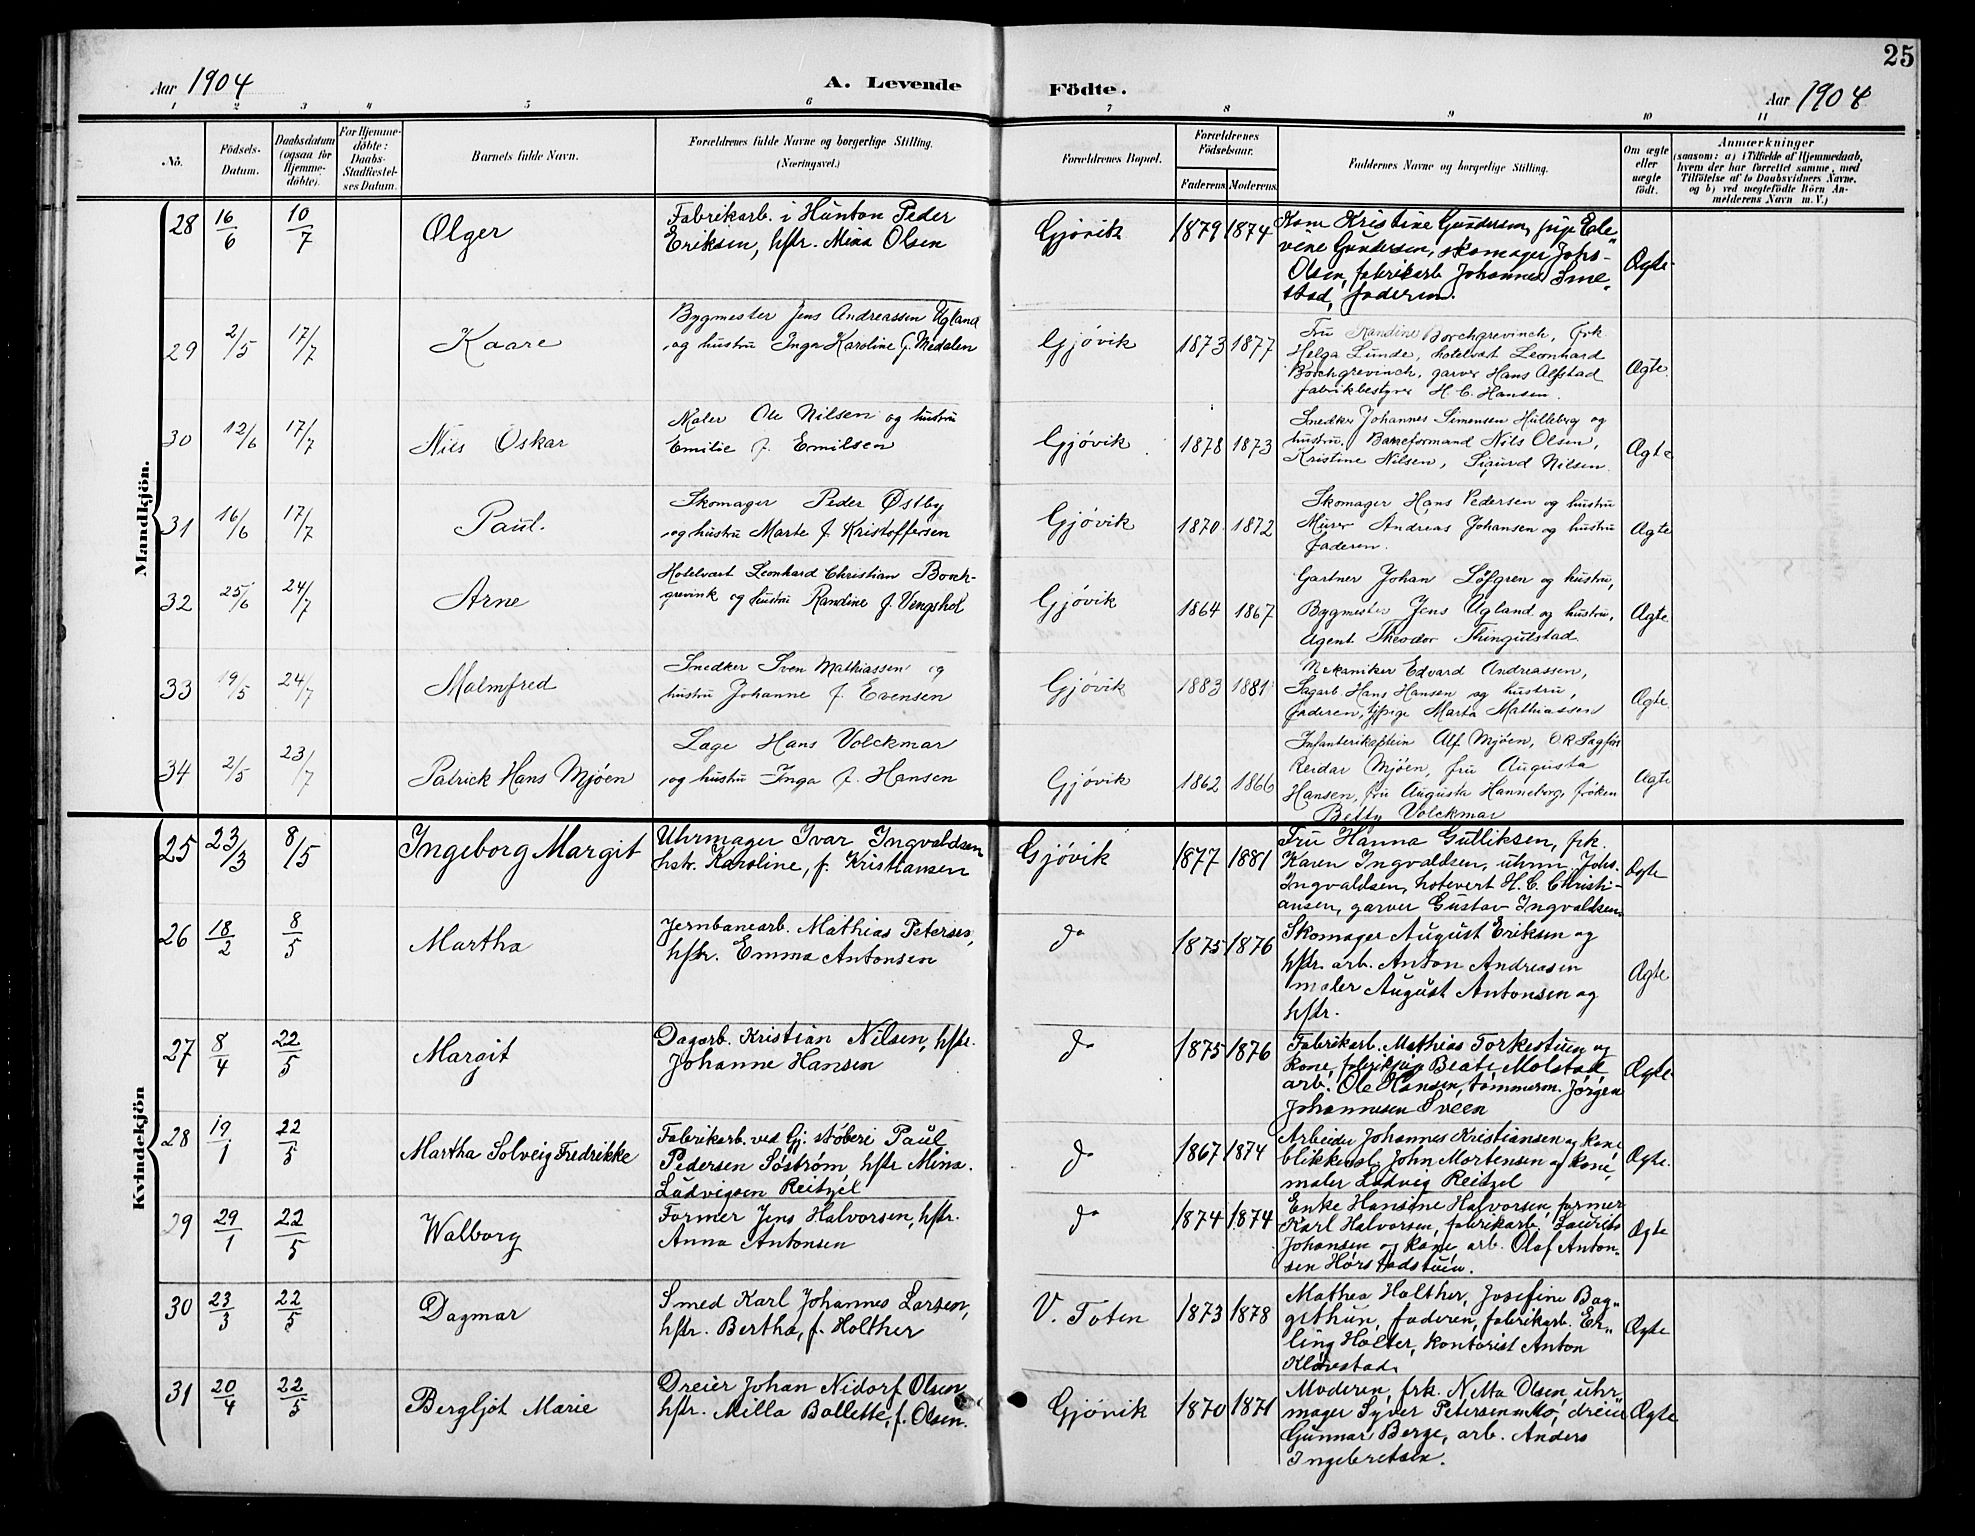 25
Aar 1904
A. Levende
Födte.
Aar 1904
1 2 3 4 5 6 7 8 9 10 11
No.
Födsels-
Datum.
Daabsdatum
(ogsaa for
Hjemme-
döbte).
For Hjemme-
döbte:
Daabs-
Stadfæstel-
ses Datum.
Barnets fulde Navn.
Forældrenes fulde Navne og borgerlige Stilling.
(Næringsvei.)
Forældrenes Bopæl.
Forældrenes
Födselsaar.
Faderens.
Moderens.
Faddernes Navne og borgerlige Stilling.
Om ægte
eller
uægte
födt.
Anmærkninger
(saasom: a) i Tilfælde af Hjemmedaab,
hvem der har forrettet samme, med
Tilföielse af to Daabsvidners Navne.
og b) ved uægtefödte Börn An-
melderens Navn m. V.)
Mandkjön.
28 16/6 10/7 Olger
Fabrikarb. i Hunton Peder
Eriksen, hstr. Mina Olsen
Gjövik 1879 1874
Kone Kristine Gundersen, pige Ele-
vine Gundersen, skomager Johs.
Olsen, fabrikarb. Johannes Sme-
stad, faderen.
Ægte
29 2/5 17/7 Kaare
Bygmester Jens Andreassen Ugland
og hustru Inga Karoline f. Medalen
Gjövik 1873 1877
Fru Randine Borchgrevinch, frk
Helga Lunde, hotelvært Leonhard
Borchgrevinch, garver Hans Alfstad
fabrikbestyrer H. C. Hansen.
Ægte.
30 12/6 17/7 Nils Oskar
Maler Ole Nilsen og hustru
Emilie f. Emilsen
Gjövik 1878 1873
Snedker Johannes Simensen Hulleberg og
hustru, Baneformand Nils Olsen,
Kristine Nilsen, Sigurd Nilsen.
Ægte
31 16/6 17/7 Paul.
Skomager Peder Østby
og hustru Marte f. Kristoffersen
Gjövik 1870 1872
Skomager Hans Pedersen og hustru
Murer Andreas Johansen og hustru
faderen.
Ægte
32 25/6 24/7 Arne
Hotelvært Leonhard Christian Borch-
grevink og hustru Randine f. Vengshol
Gjövik 1864 1867
Gartner Johan Löfgren og hustru,
Bygmester Jens Ugland og hustru,
Agent Theodor Thingulstad.
Ægte.
33 19/5 24/7 Malmfred
Snedker Sven Mathiassen og
hustru Johanne f. Evensen
Gjövik 1883 1881
Mekaniker Edvard Andreassen,
Sagarb. Hans Hansen og hustru,
faderen, pige Marta Mathiassen
Ægte.
34 2/5 23/7 Patrick Hans Mjöen
Læge Hans Volckmar
og hustru Inga f. Hansen
Gjövik 1862 1866
Infanterikaptein Alf Mjöen,
Reidar Mjöen, fru Augusta
Hansen, fru Augusta Hanneborg, fröken
Betty Volckmar
Ægte
Kvindekjön
25 23/3 8/5 Ingeborg Margit
Uhrmager Ivar Ingvaldsen
hstr. Karoline, f. Kristiansen
Gjövik 1877 1881
Fru Hanna Gulliksen, frk.
Karen Ingvaldsen, uhrm. Johs.
Ingvaldsen, hotevert H. C. Christi-
ansen, garver Gustav Ingvaldsen
Ægte
26 18/2 8/5 Martha
Jernbanearb. Mathias Petersen,
hstr. Emma Antonsen
do 1875 1876
Skomager August Eriksen og
hstr. arb. Anton Andreasen
maler August Antonsen og
hstr.
Ægte
27 8/4 22/5 Margit
Dagarb. Kristian Nilsen, hstr.
Johanne Hansen
do 1875 1876
Fabrikarb. Mathias Torkestuen og
kone, Beate Molstad
arb. Ole Hansen, tömmerm. Jörgen
Johannesen Sveen
Ægte
28 19/1 22/5 Martha Solveig Fredrikke
Fabrikarb. ved Gj. stöberi Paul
Pedersen Söström, hstr. Mina
Ludvigsen Reitzel
do 1867 1874
Arbeider Johannes Kristiansen og kone
blikkensl. John Mortensen og kone,
maler Ludvig Reitzel
Ægte.
29 29/1 22/5 Walborg
Former Jens Halvorsen, hstr.
Anna Antonsen
do 1874 1874
Enke Hansine Halvorsen, former
Karl Halvorsen, fabrikarb. Laurits
Johansen og kone, arb. Olaf Anton-
sen Hörstadstuen.
Ægte
30 23/3 22/5 Dagmar
Smed Karl Johannes Larsen,
hstr. Bertha, f. Holther
V. Toten 1873 1878
Mathea Holther, Josefine Bag-
gethun, faderen, fabrikarb. Er-
ling Holter, kontorist Anton
Klövstad.
Ægte
31 20/4 22/5 Bergljot Marie
Dreier Johan Nidorf Olsen
hstr. Milla Bollette, f. Olsen.
Gjövik 1870 1871
Moderen, frk. Netta Olsen, uhr-
mager Syver Petersen Mo, dreier
Gunnar Berge, arb. Anders
Ingebretsen.
Ægte